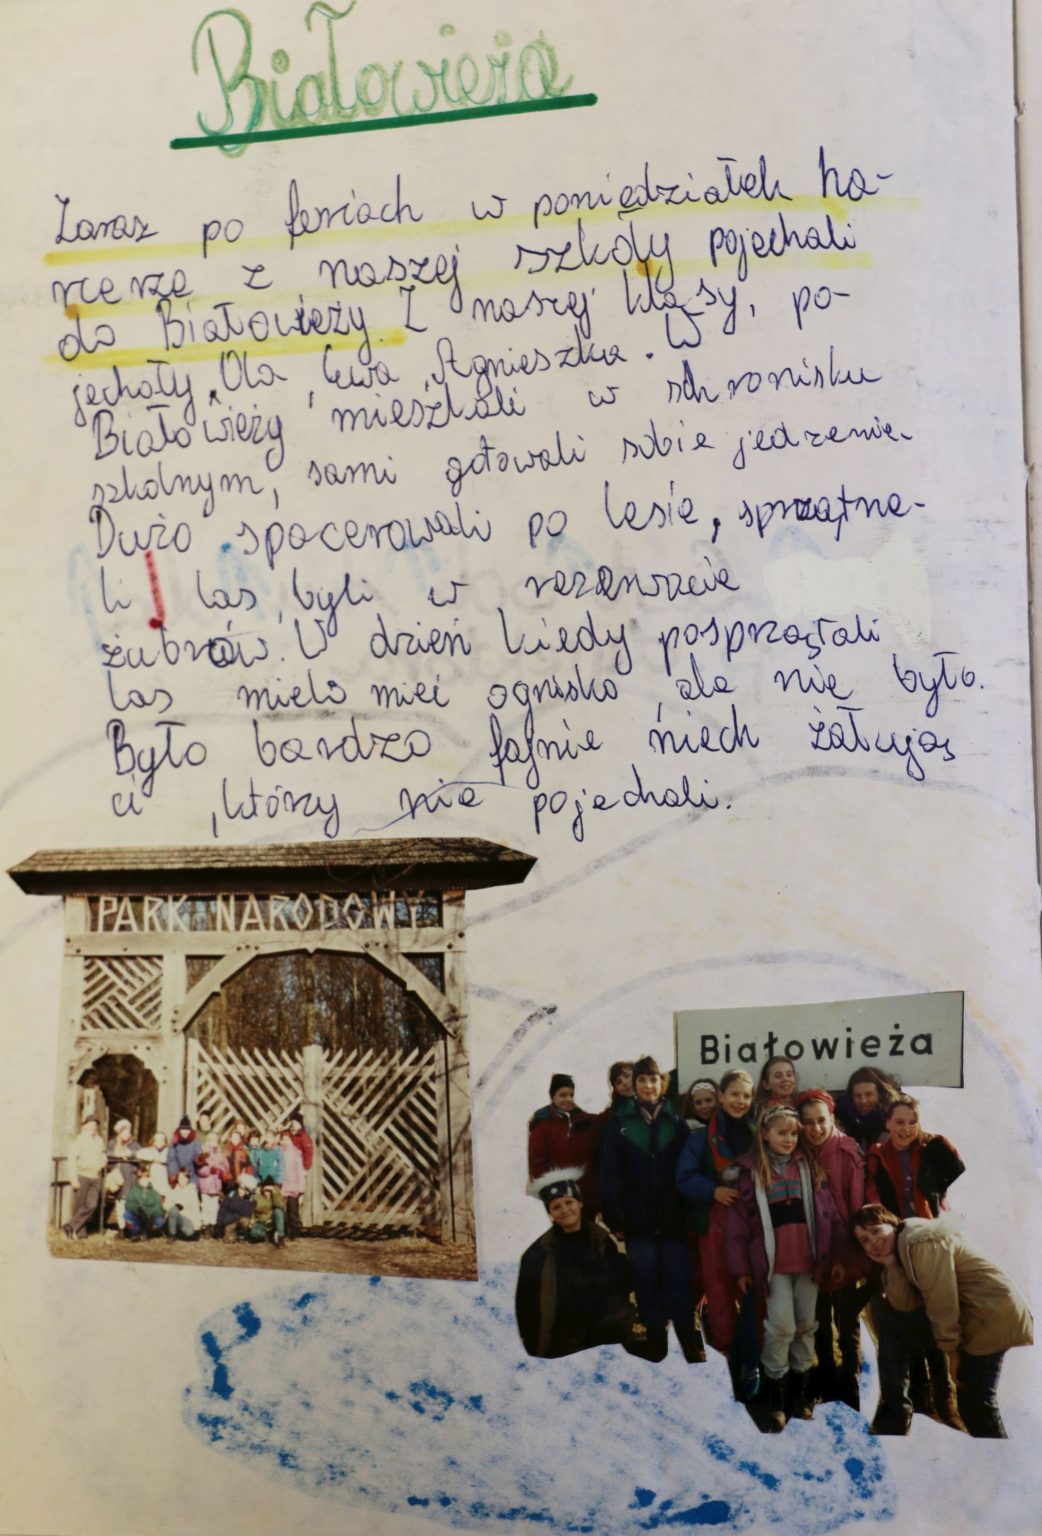 Białowieża
Zaraz po feriach w poniedziałek ha-
rcerze z naszej szkoły pojechali
do Białowieży. Z naszej klasy, po-
jechały, Ola, Ewa, Agnieszka. W
Białowieży mieszkali w schronisku
szkolnym, sami gotowali sobie jedzenie.
Dużo spacerowali po lesie, sprzątne-
li las, byli w rezerwacie
żubrów. W dzień kiedy posprzątali
las mieli mieć ognisko, ale nie było.
Było bardzo fajnie niech żałują
ci, którzy nie pojechali.
PARK NARODOWY
Białowieża